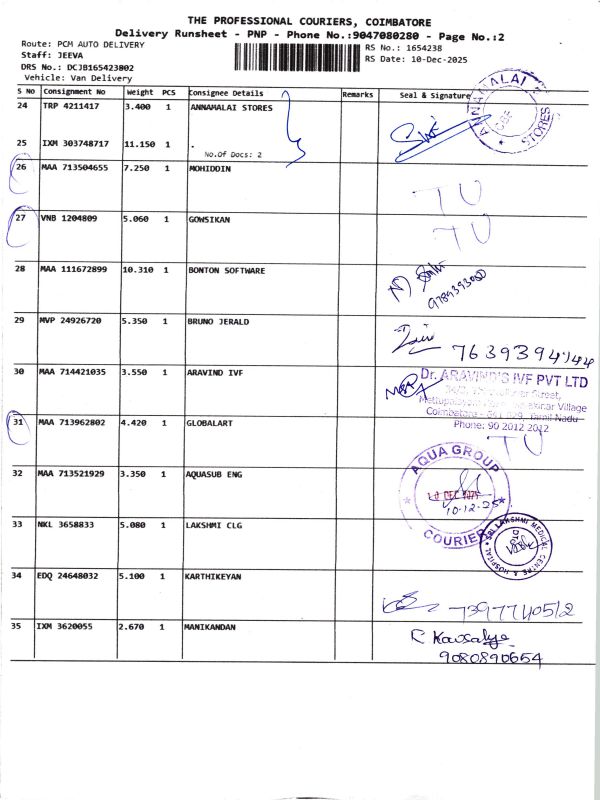 THE PROFESSIONAL COURIERS, COIMBATORE
Delivery Runsheet - PNP - Phone No.:9047080280 - Page No.:2
Route: PCM AUTO DELIVERY
Staff: JEEVA
DRS No.: DCJB165423802
Vehicle: Van Delivery
RS No.: 1654238
RS Date: 10-Dec-2025
S No Consignment No Weight PCS Consignee Details Remarks Seal & Signature
24 TRP 4211417 3.400 1 ANNAMALAI STORES
ANNAMALAI STORES CBE
25 IXM 303748717 11.150 1 .
No.Of Docs: 2
26 MAA 713504655 7.250 1 MOHIDDIN
TU
27 VNB 1204809 5.060 1 GOWSIKAN
TU
28 MAA 111672899 10.310 1 BONTON SOFTWARE
29 MVP 24926720 5.350 1 BRUNO JERALD
30 MAA 714421035 3.550 1 ARAVIND IVF
Dr. ARAVIND'S IVF PVT LTD
Street,
Village
Coimbatore - 641 029, Tamil Nadu
Phone: 90 2012 2012
31 MAA 713962802 4.420 1 GLOBALART
TU
32 MAA 713521929 3.350 1 AQUASUB ENG
AQUA GROUP
10 DEC
10-12-25
COURIER
33 NKL 3658833 5.080 1 LAKSHMI CLG
SRI LAKSHMI MEDICAL CENTRE & HOSPITAL
34 EDQ 24648032 5.100 1 KARTHIKEYAN
35 IXM 3620055 2.670 1 MANIKANDAN
R Kausalya
9080890654